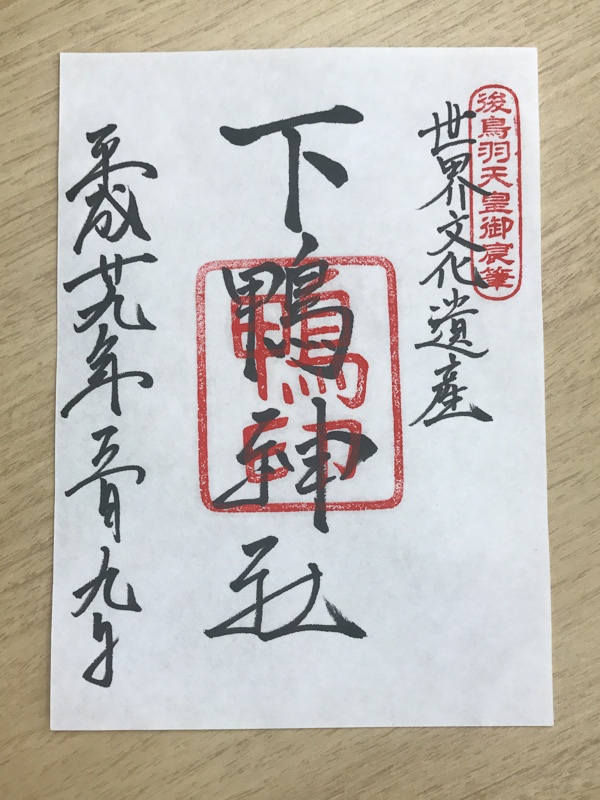 後鳥羽天皇御宸筆
世界文化遺産
下鴨神社
平成廿九年五月九日